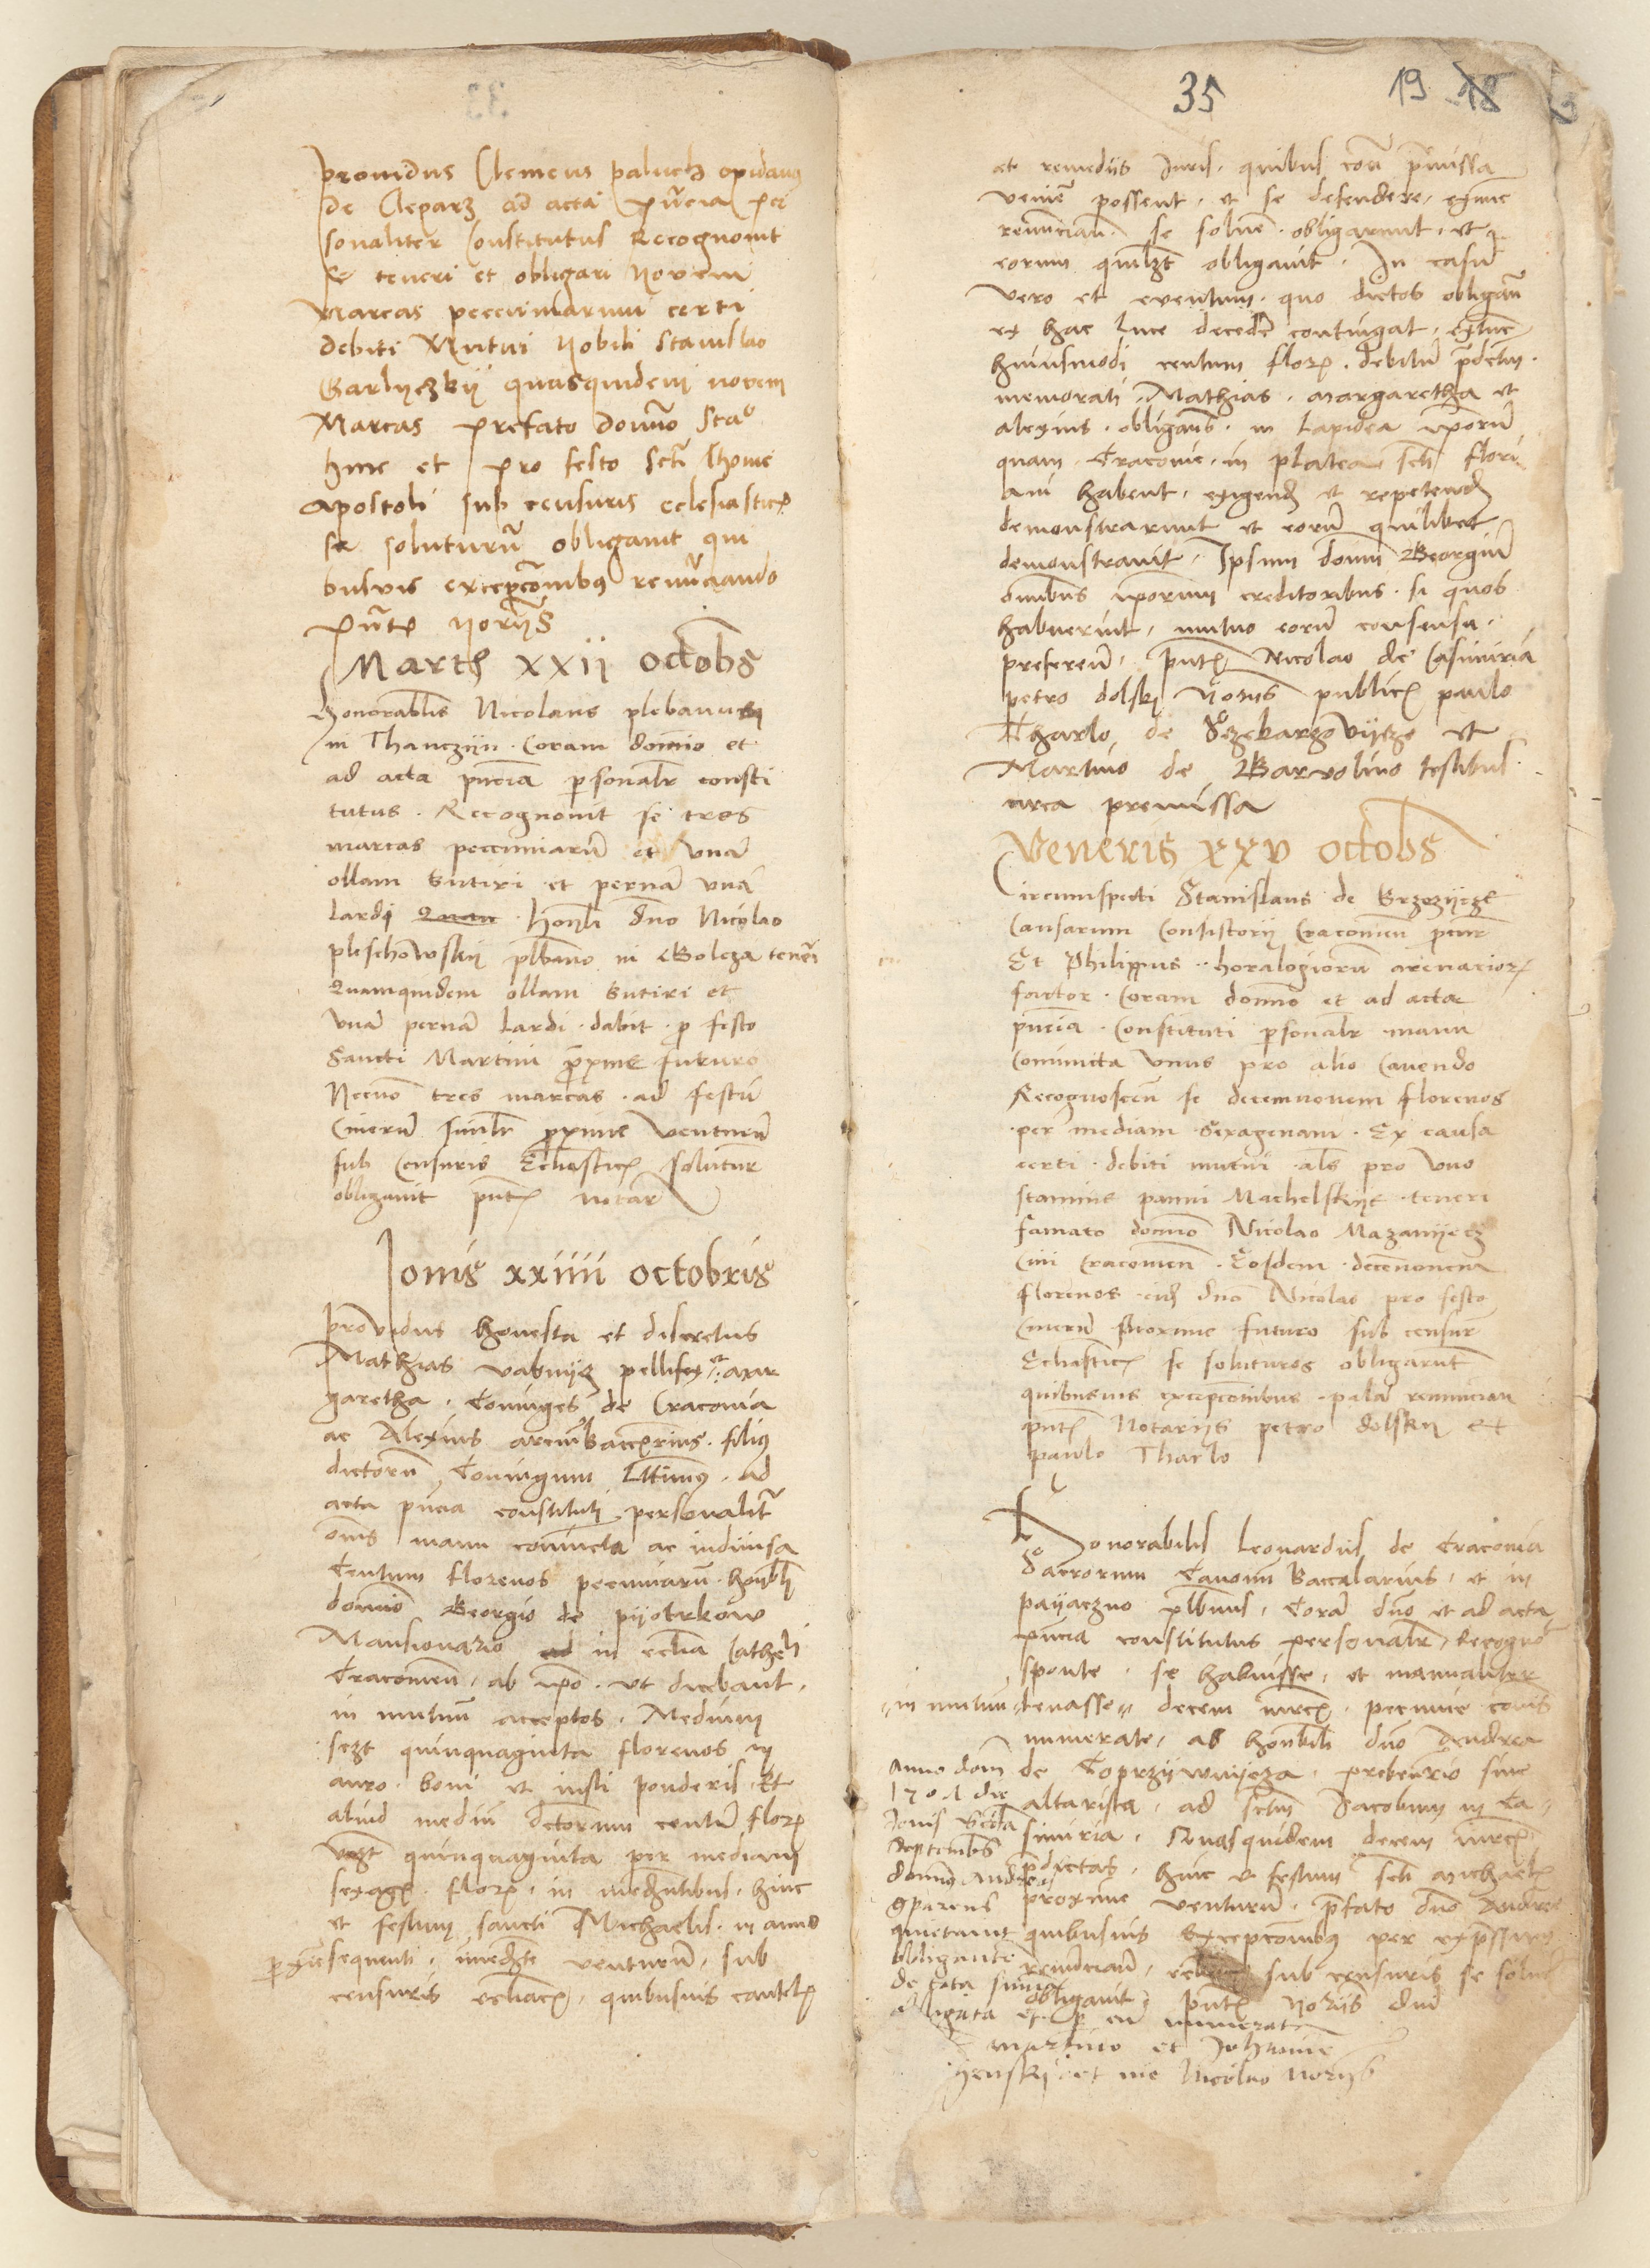 providus Clemens paluch opidanus
de Cleparz ad acta pntia per
sonaliter Constitutus Recognovit
se teneri et obligari Novem
Marcas peccuniarum certi
debiti Mutui Nobili Stanislao
Garlyczkij quasquidem novem
Marcas prefato domno Stao
hinc et pro festo Scti Thome
Apostoli sub censuris eclesiasticis
se soluturu obligavit qui
busvis excepcombus renuciando
Pnte Noriis
Marth xxij octobs
Honorablis Nicolaus plebanus
in Thanczijn Coram domno et
ad acta pncia psonalr consti
tutus . Recognovit se tres
marcas peccuniaru et Una
ollam butiri et perna una
Lardi Honli dno Nicolao
pleschowskij plbano in Golcza teneri
Quamquidem ollam butiri et
Una perna Lardi . dabit . p festo
Sancti Martini proxime futuro
Necno tres marcas . ad festu
Cineru similr proxime Venturu
sub Censuris Eclsastic solutur
obligavit pnt notar
Jovis xxiiii octobris
Providus honesta et discretus
Mathias pellifex et mar
garetha . Coniuges de Cracovia
ac Alexius arcium Baccrius . filius
dictoru Coniugum . ad
acta pncia constituti personalitr
omes manu coniuncta ac indiuisa
Centum florenos pecuniaru . honbli
domno Georgio de pijotrkow
Mansionario ad in eclia Catheli
Cracovien . ab ipo . ut dicebant .
in mutuu acceptos . Medium
sczt quinquaginta florenos in
auro . boni et iusti ponderis . Et
aliud mediu dctorum centu flor
vczt quinquaginta per mediam
sexag flor . in . hinc
et festum sancti Michaelis . in anno
pxie sequenti . venturu . sub
censuris . quibusvis cautel
35 19 18
et remediis Juris . quibus cont pmissa
venire possent . et se defendere . extunc
renuncian . se solue . obligarunt . et
eorum quilzt obligavit . In casu
Vero et eventum . quo dictos obligatu
ex hac luce decede contingat . extunc
huiusmodi centum flor . debitu pdctm .
memorati Mathias . margaretha et
alexius . obligatis . in Lapidea ipsoru
quam . Cracovie . in platea scti Flori
ani habent . exigend et repetend
demonstrarunt et eoru quilibet
demonstravit . Ipsum domn Georgiu
omibus ipsorum creditoribus . si quos
habuerint . mutuo eoru consensu .
preferen . pnt Nicolao de Casimiria
petro dolski Noriis publicis paulo
Tharlo de Sczekarzowijcze et
Martino de Garvolino testibus
circa premissa
Veneris xxv octobs
Circumspecti Stanislaus de Brzozijcze
Causarum Consistorij Cracovien pcur
Et Philippus . horalogiorum arenarior
factor . Coram domno et ad acta
pncia . Constituti psonalr manu
Coniuncta Unus pro alio Cavendo
Recognoscen se decemnovem florenos
per mediam sexagenam . Ex causa
certi . debiti mutui als pro Uno
stamine panni Machelskije teneri
famato domno Nicolao Mazanijecz
Civi Cracovien . Eosdem . decemnovem
florenos . eid dno Nicolao pro festo
Cineru Proxime futuro sub censur
Eclastic se soluturos obligarut
quibusvis excepcombus . pala renuncian
pnt Notariis petro dolskij et
paulo Tharlo
Honorabilis Leonardus de Cracovia
Sacrorum Canonu Baccalarius . et in
paijaczno plbnus . Cora dno et ad acta
pncia constitutus personalr . Recognovt
sponte . se habuisse . et manualiter
in mutuu levasse decem mrcs . pecunie cois
numerate . ab honbili dno Andrea
de Coprzijwnijcza . prebenrio sive
altarista . ad sctm Jacobum in Ca
simiria . Quasquidem decem mrcs
pdictas . hinc et festum scti Michaelis
proxime venturu . pfato dno Andree
quibusvis Excepcombus per expssum
renuncian . sub censuris se soluer
obligavit . pnt Noriis dno
Martino et Johanne
et me Nicolao Noriis
Anno dom
1501 die
Jovis
Septembs
domnus Andreas
9parens
quietavit
obligante
de tota suma
obligata et p eu numerat